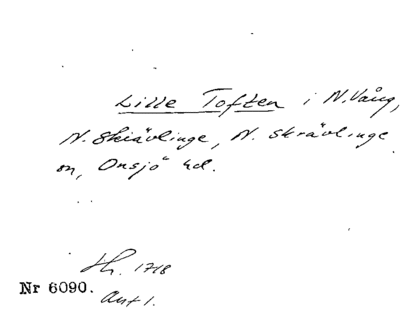 Lille Toften i N. Vång,
N. Skiävlinge, N. Skrävlinge
sn, Onsjö hd.
Hh. 1718
Nr 6090.
Ant 1.